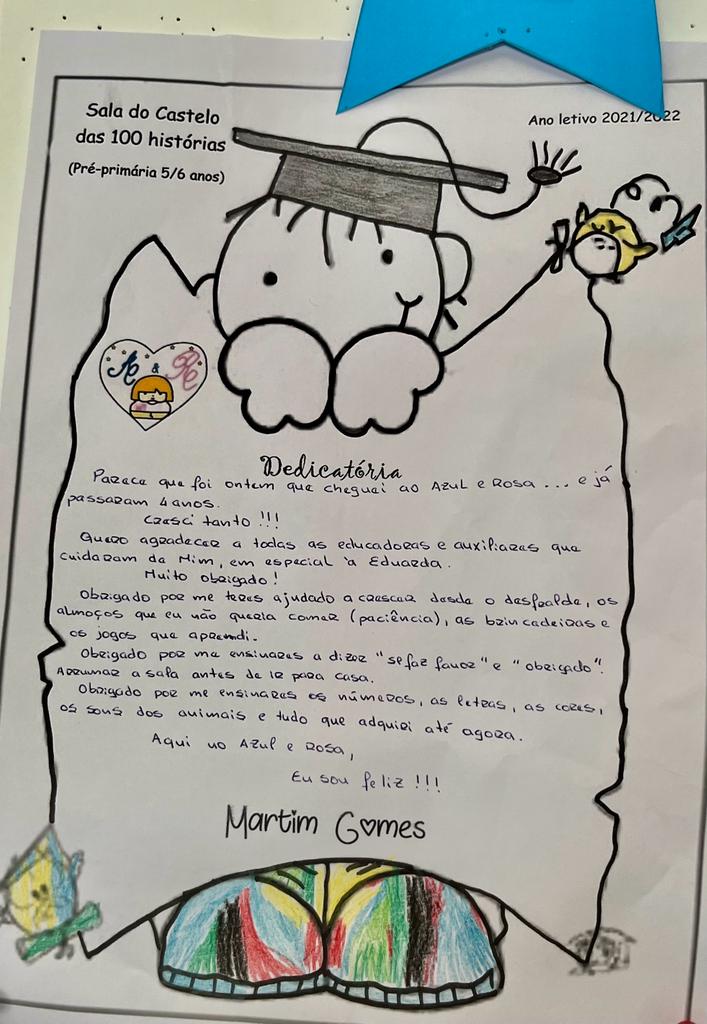 Sala do Castelo
das 100 histórias
(Pré-primária 5/6 anos)
Ano letivo 2021/2022
A & R
Dedicatória
Parece que foi ontem que cheguei ao Azul e Rosa... e já
passaram 4 anos.
Cresci tanto!!!
Quero agradecer a todas as educadoras e auxiliares que
cuidaram de Mim, em especial à Eduarda.
Muito obrigado!
Obrigado por me teres ajudado a crescer desde o desfralde, os
almoços que eu não queria comer (paciência), as brincadeiras e
os jogos que aprendi.
Obrigado por me ensinares a dizer "se faz favor" e "obrigado".
Arrumar a sala antes de ir para casa.
Obrigado por me ensinares os números, as letras, as cores,
os sons dos animais e tudo que adquiri até agora.
Aqui no Azul e Rosa,
Eu sou feliz!!!
Martim Gomes